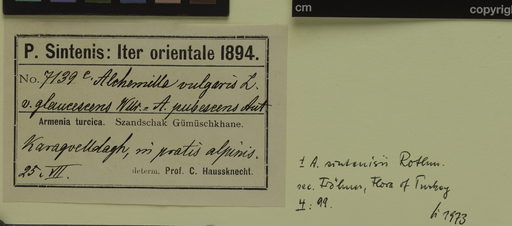 cm
copyrig
P. Sintenis: Iter orientale 1894.
No. 7139 c. Alchemilla vulgaris L.
v. glaucescens Wllr. = A. pubescens Aut
Armenia turcica. Szandschak Gümüschkhane.
Karagoelldagh, in pratis alpinis.
25. VII. determ. Prof. C. Haussknecht.
A. sintenisii Rothm.
sec. Fröhner, Flora of Turkey
4: 99.
1973